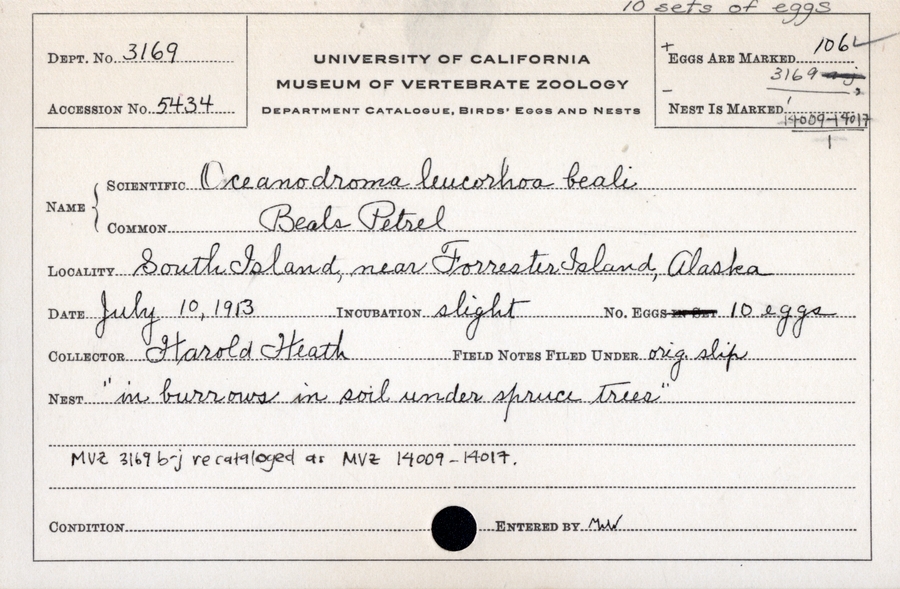 10 sets of eggs
DEPT. No. 3169
UNIVERSITY OF CALIFORNIA
MUSEUM OF VERTEBRATE ZOOLOGY
DEPARTMENT CATALOGUE, BIRDS' EGGS AND NESTS
ACCESSION No. 5434
+ EGGS ARE MARKED 106
3169
– NEST IS MARKED
14009–14017
1
NAME
SCIENTIFIC Oceanodroma leucorhoa beali
COMMON Beals Petrel
LOCALITY South Island, near Forrester Island, Alaska
DATE July 10, 1913 INCUBATION slight No. EGGS IN SET 10 eggs
COLLECTOR Harold Heath FIELD NOTES FILED UNDER orig. slip
NEST "in burrows in soil under spruce trees"
MVZ 3169 b-j recataloged as MVZ 14009–14017.
CONDITION ENTERED BY